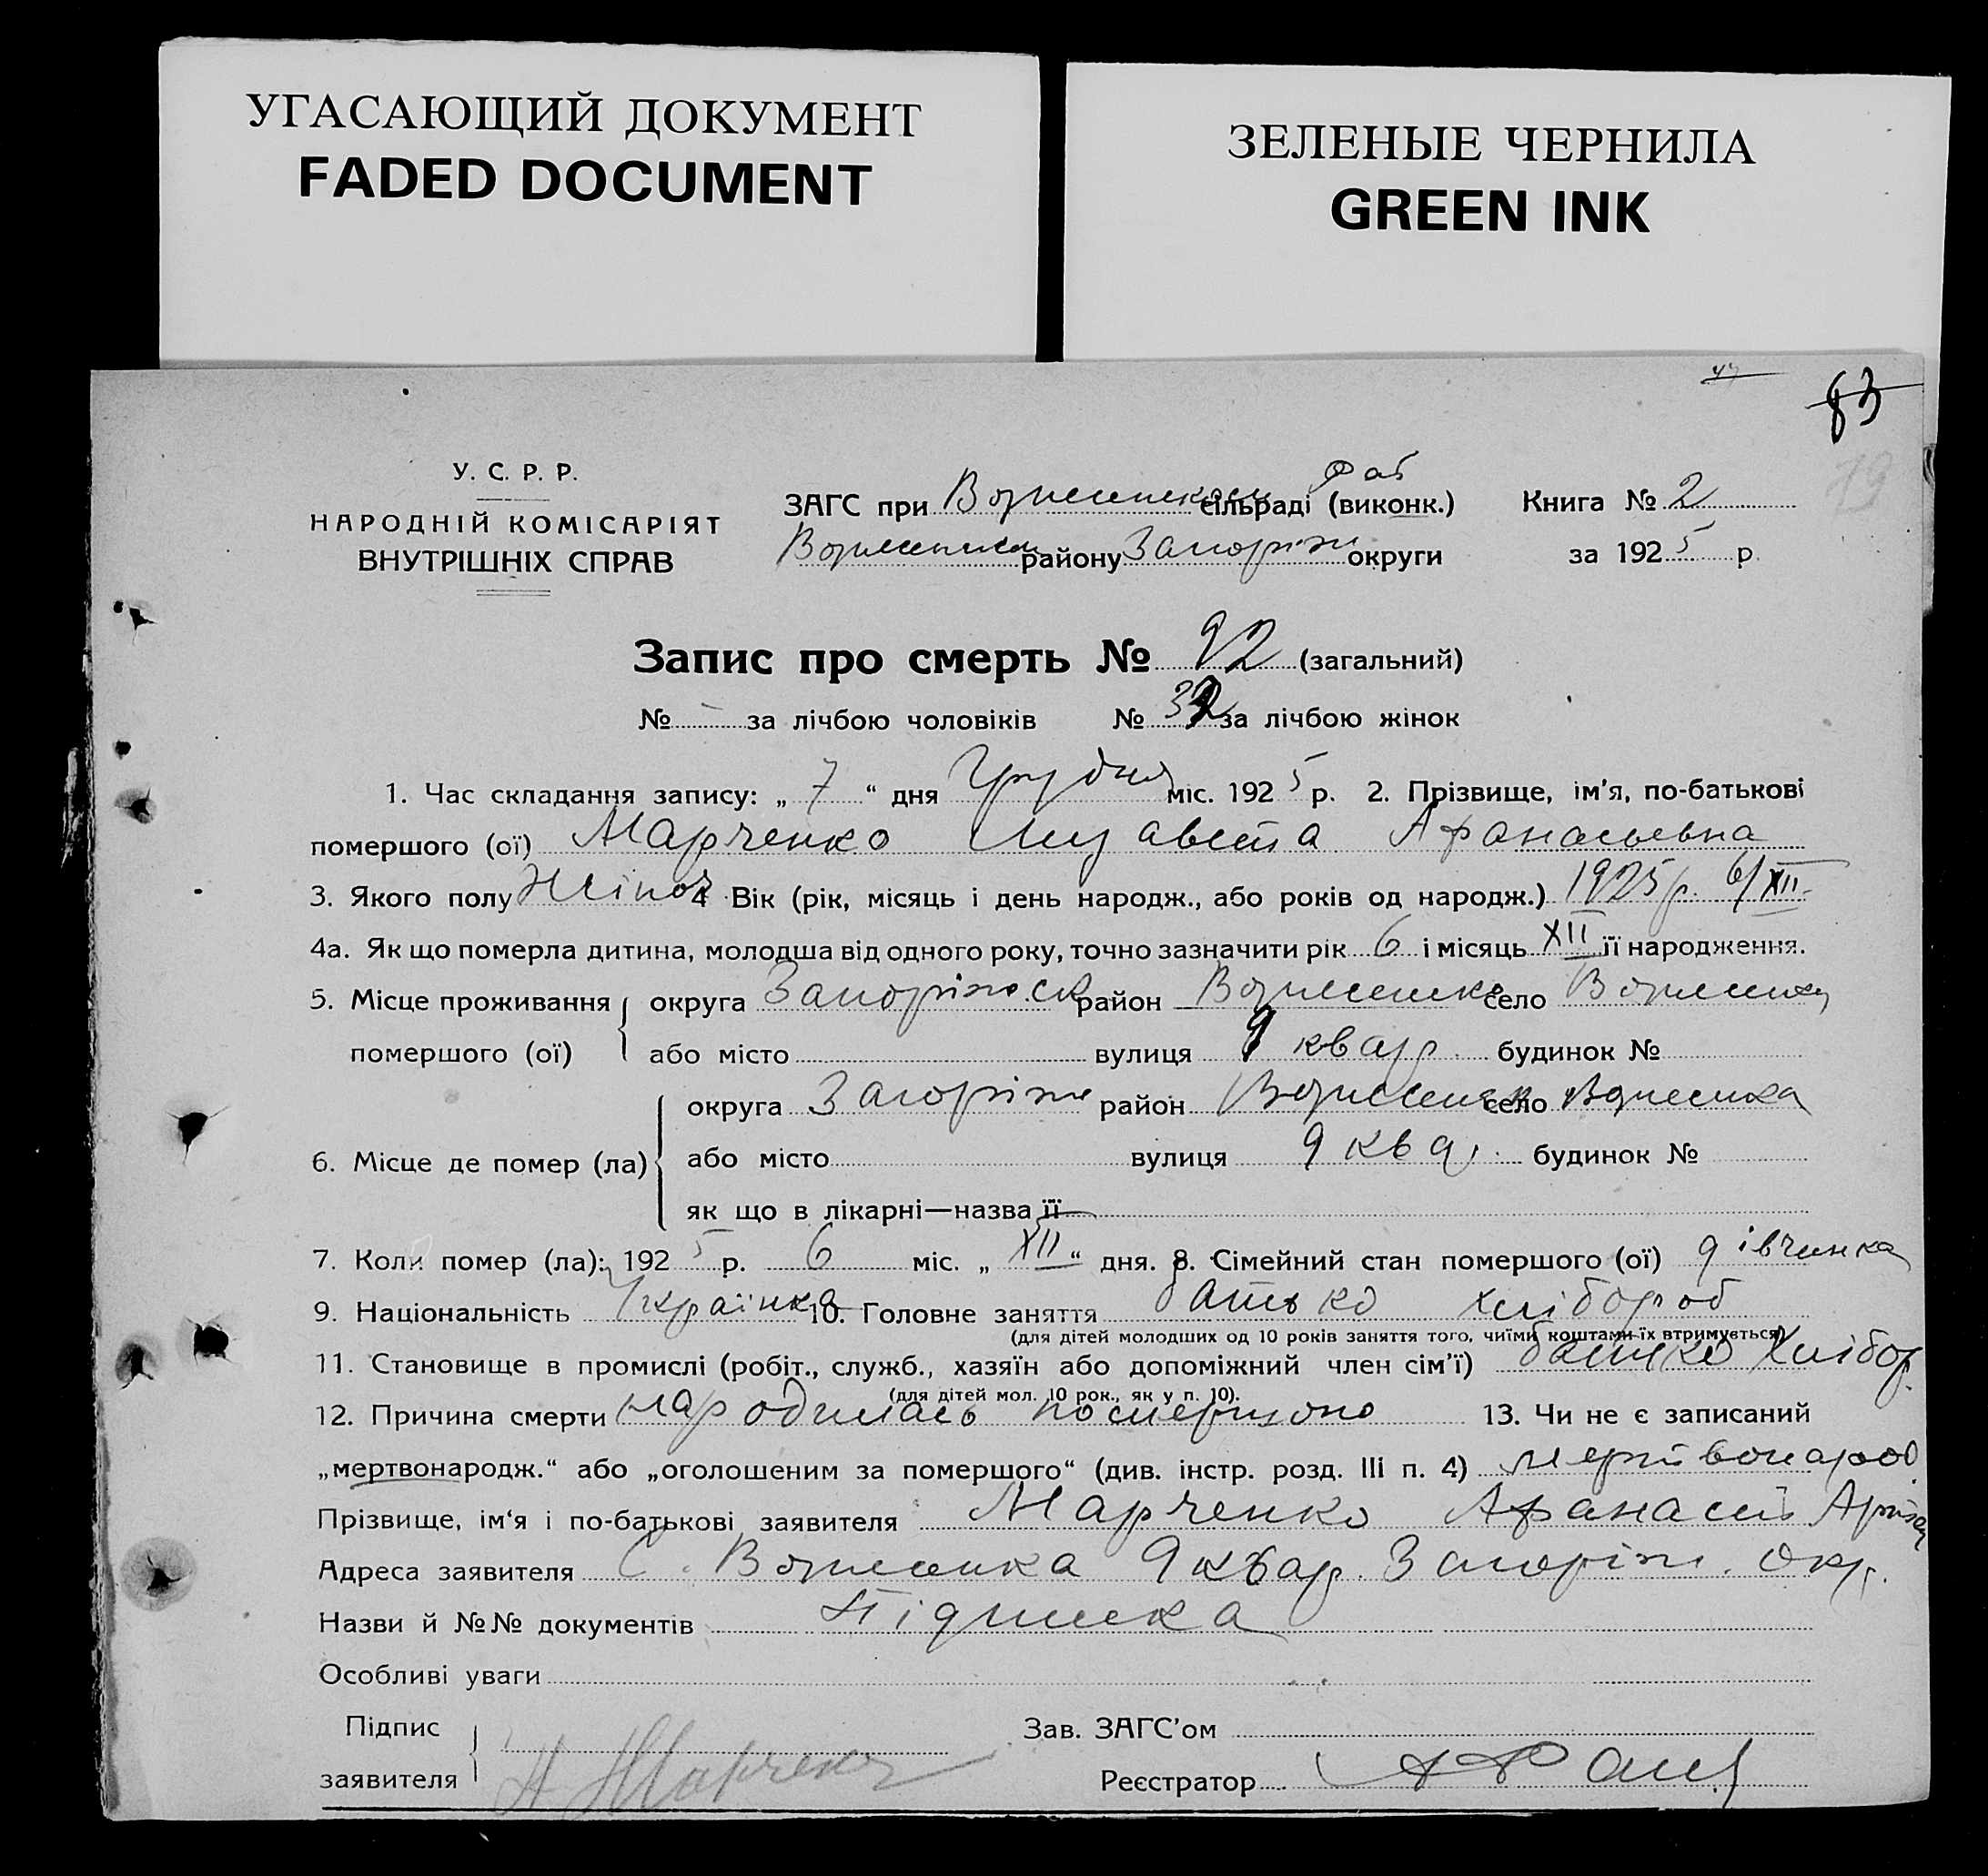 УГАСАЮЩИЙ ДОКУМЕНТ
FADED DOCUMENT
ЗЕЛЕНЫЕ ЧЕРНИЛА
GREEN INK
83
79
У. С. Р. Р.
НАРОДНІЙ КОМІСАРІЯТ
ВНУТРІШНІХ СПРАВ
ЗАГС при сільраді (виконк.)
району Запоріж округи
Книга № 2
за 1925 р.
Запис про смерть № 92 (загальний)
№ - за лічбою чоловіків № 32 за лічбою жінок
1. Час складання запису: „ 7 “ дня Грудня міс. 1925 р. 2. Прізвище, ім'я, по-батькові
помершого (ої) Марченко Лизавета Афанасьевна
3. Якого полу Жіноч 4 Вік (рік, місяць і день народж., або років од народж.) 1925 р. 6/XII
4а. Як що померла дитина, молодша від одного року, точно зазначити рік 6 і місяць XII її народження.
5. Місце проживання помершого (ої) округа Запоріжск район Вознесенк село Вознесенка
або місто вулиця 9 квар. будинок №
6. Місце де помер (ла) округа Запоріж район Вознесенк село Вознесенка
або місто вулиця 9 квар. будинок №
як що в лікарні—назва її
7. Коли помер (ла): 1925 р. 6 міс. „ XII “ дня. 8. Сімейний стан помершого (ої) дівчинка
9. Національність Українка 10. Головне заняття батько хлібороб
(для дітей молодших од 10 років заняття того, чиїми коштами їх втримується)
11. Становище в промислі (робіт., служб., хазяїн або допоміжний член сім'ї) батько хлібор.
(для дітей мол. 10 рок., як у п. 10).
12. Причина смерти народилась 13. Чи не є записаний
„мертвонародж.“ або „оголошеним за помершого“ (див. інстр. розд. III п. 4) мертвонарод.
Прізвище, ім'я і по-батькові заявителя Марченко Афанасий
Адреса заявителя С. Вознесенка 9 квар. Запоріж. Окр.
Назви й №№ документів Підписка
Особливі уваги
Підпис
заявителя А Марченко
Зав. ЗАГС'ом
Реєстратор